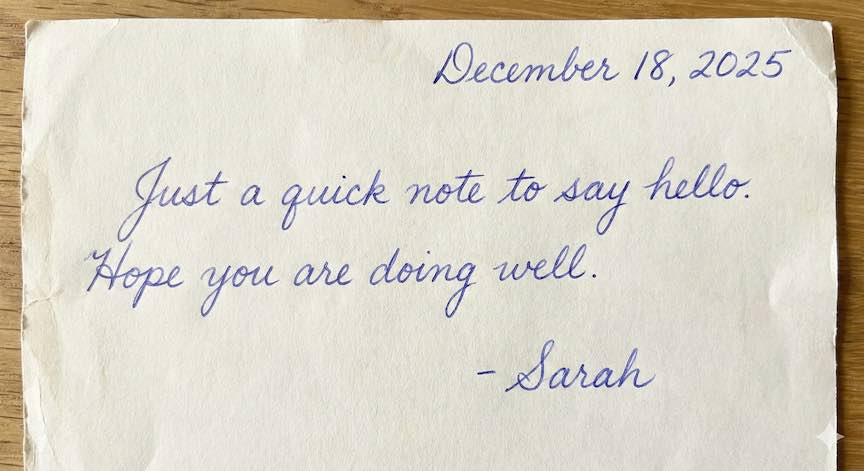 December 18, 2025
Just a quick note to say hello.
Hope you are doing well.
- Sarah